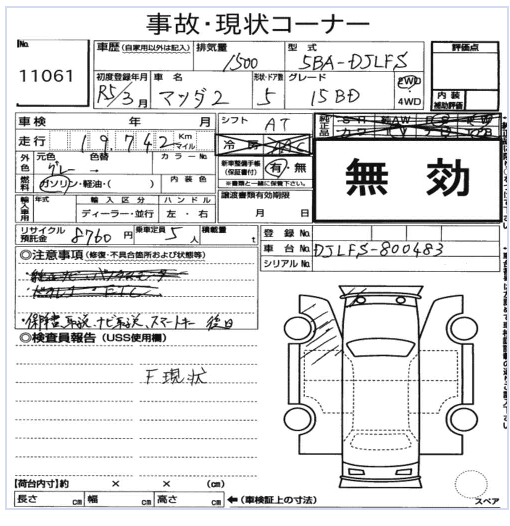 事故・現状コーナー
No.
11061
車歴 (自家用以外は記入) 排気量 1500 型式 5BA-DJLFS
評価点
初度登録年月 R5/3月 車名 マツダ2 形状・ドア数 5 グレード 15BD 2WD 4WD
内装 補助評価
車検 年 月 シフト AT
走行 19,742 Km マイル 冷房 AAC
外色 元色 グレー 色替 → カラーNo. 新車整備手帳(保証書付) 有・無
※書類と一緒に保管下さい。
燃料 ガソリン・軽油・( ) 内装色
輸入車用 年式 輸入区分 ハンドル 譲渡書類有効期限
ディーラー・並行 左・右 月 日
無効
リサイクル預託金 8760円 乗車定員 5人 積載量 t 登録No.
車台No. DJLFS-800483
シリアルNo.
◎注意事項 (修復・不具合箇所および状態等)
・保障書、取説、ナビ取説、スマートキー 後日
◎検査員報告 (USS使用欄)
F現状
【荷台内寸】約 × × (cm)
長さ cm 幅 cm 高さ cm ←(車検証上の寸法)
スペア